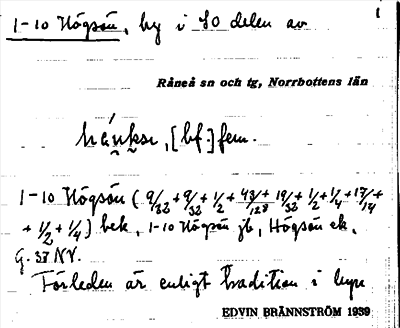 1-10 Högsön, by i SO delen av
1
Råneå sn och tg, Norrbottens län
[bf.] fem.
1-10 Högsön (9/32 + 9/32 + 1/2 + 43/128 + 19/32 + 1/2 + 1/4 + 17/
+ 1/2 + 1/4) bek, 1-10 Högsön jb, Högsön ek.
G. 37 NV.
Förleden är enligt tradition i byn
EDVIN BRÄNNSTRÖM 1939